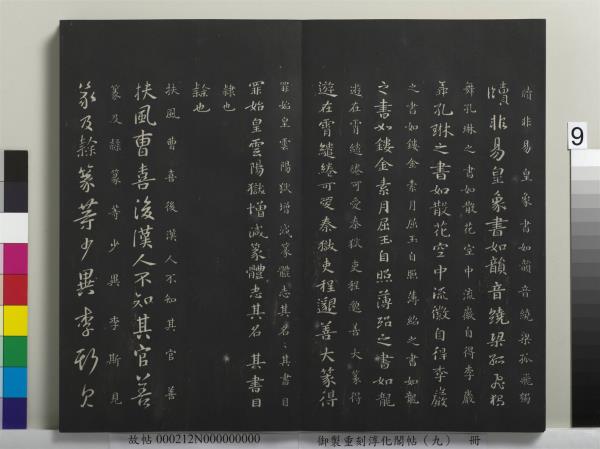 牘非易皇象書如韻音繞梁孤飛獨
牘非易皇象書如韻音繞梁孤飛獨
舞孔琳之書如散花空中流徽自得李巖
舞孔琳之書如散花空中流徽自得李巖
之書如鏤金素月屈玉自照薄紹之書如龍
之書如鏤金素月屈玉自照薄紹之書如龍
遊在霄繾綣可愛秦獄吏程邈善大篆得
遊在霄繾綣可愛秦獄吏程邈善大篆得
罪始皇雲陽獄增減篆體去其名其書曰
罪始皇雲陽獄增減篆體去其名其書曰
隸也
隸也
扶風曹喜後漢人不知其官善
扶風曹喜後漢人不知其官善
篆及隸篆等少異李斯見
篆及隸篆等少異李斯見
9
故帖 000212N000000000 御製重刻淳化閣帖（九） 冊